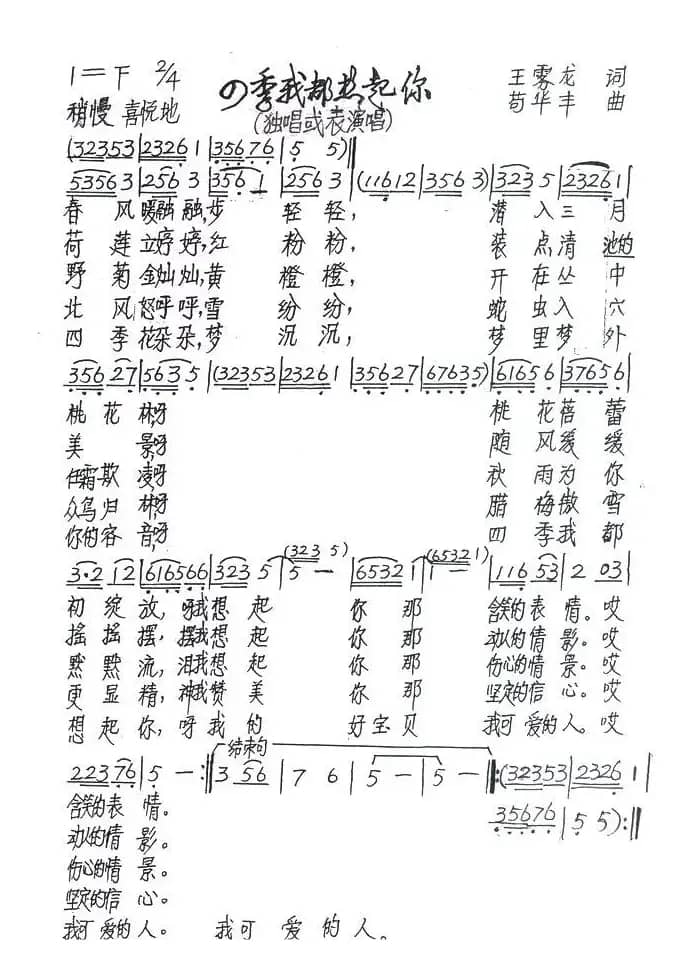 1=F 2/4
四季我都想起你
王雾龙 词
苟华丰 曲
稍慢 喜悦地
(独唱或表演唱)
(32353|23261|35676|5 5)‖
53563|2563|3561|2563|(11612|3563)|3235|23261|
春风暖融融,步轻轻,潜入三月
荷莲立婷婷,红粉粉,装点清池的
野菊金灿灿,黄橙橙,开在丛中
北风怒呼呼,雪纷纷,蛇虫入穴
四季花朵朵,梦沉沉,梦里梦外
35627|5635|(32353|23261|35627|67635)|61656|37656|
桃花林呀 桃花蓓蕾
美景呀 随风缓缓
任霜欺凌呀 秋雨为你
众鸟归林呀 腊梅傲雪
你的容音呀 四季我都
(323 5) (6532 1)
3·2 12|61656 6|3235|5 —|65321|1 —|11653|2 03|
初绽放,呀我想起你那含笑的表情。哎
摇摇摆,摆我想起你那动人的情影。哎
默默流,泪我想起你那伤心的情景。哎
更显精,神我赞美你那坚定的信心。哎
想起你,呀我的好宝贝我可爱的人。哎
结束句
22376|5 —:‖3 56|7 6|5 —|5 —:‖(32353|23261|
35676|5 5):‖
含笑的表情。
动人的情影。
伤心的情景。
坚定的信心。
我可爱的人。 我可爱的人。